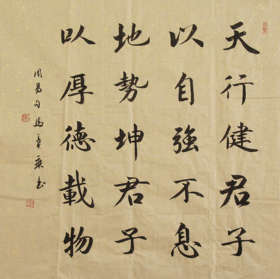 天行健君子
以自強不息
地勢坤君子
以厚德載物
周易句